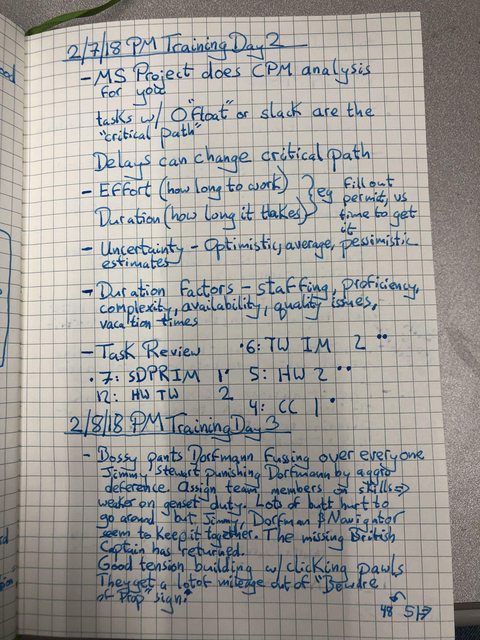 2/7/18 PM Training Day 2
- MS Project does CPM analysis
for you
tasks w/ 0 "float" or slack are the
"critical path"
Delays can change critical path
- Effort (how long to work) } eg Fill out
permit, vs
Duration (how long it takes) time to get
it
- Uncertainty - Optimistic, average, pessimistic
estimates
- Duration Factors - staffing, proficiency,
complexity, availability, quality issues,
vacation times
- Task Review • 6: TW IM 2 ••
• 7: SDPRIM 1• 5: HW 2 ••
12: HW TW 2
4: CC 1 •
2/8/18 PM Training Day 3
- Bossy pants Dorfmann fussing over everyone
Jimmy Stewart punishing Dorfmann by aggro
deference Assign team members on skills ⇒
weaker on genset duty. Lots of butt hurt to
go around but Jimmy, Dorfman & Navigator
seem to keep it together. The missing British
Captain has returned.
Good tension building w/ clicking pawls
They get a lot of mileage out of "Beware
of Prop" sign.
48 51